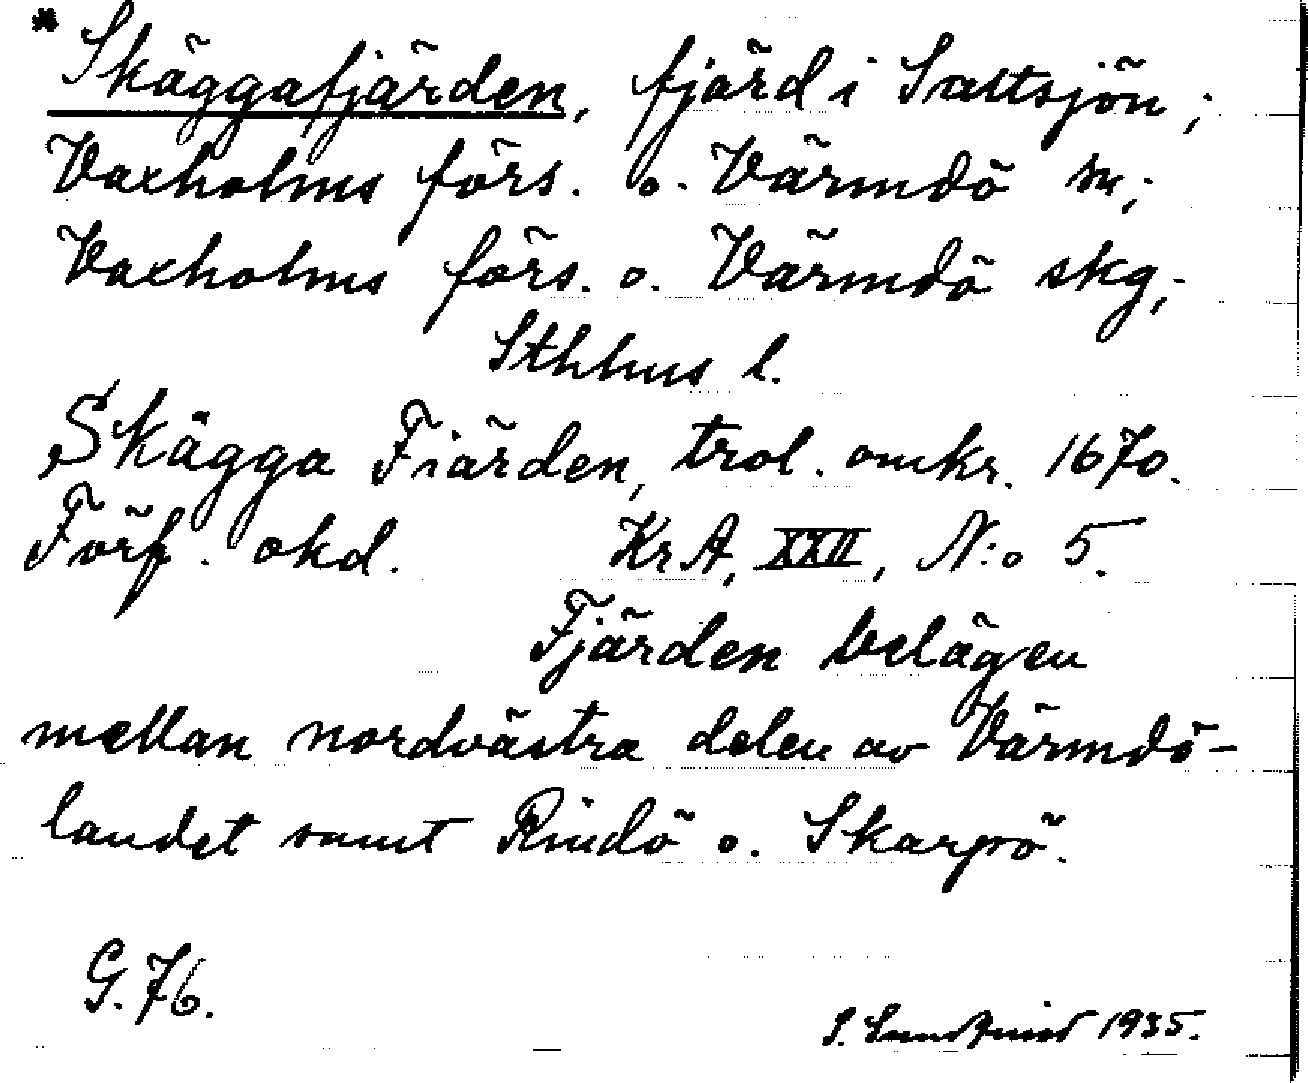 * Skäggafjärden, fjärd i Saltsjön;
Vaxholms förs. o. Värmdö sn;
Vaxholms förs. o. Värmdö skg;
Sthlms l.
Skägga Fiärden, trol. omkr. 1670.
Förf. okd. KrA, XXII, N:o 5.
Fjärden belägen
mellan nordvästra delen av Värmdö-
landet samt Rindö o. Skarpö.
G. 76.
S. Sundquist 1935.